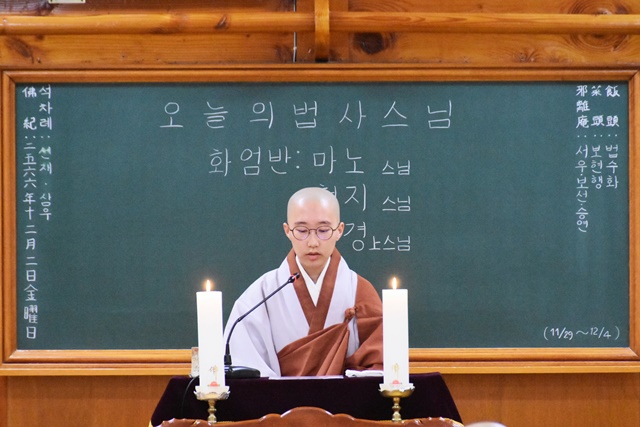 오늘의법사스님
화엄반: 마노 스님
지 스님
경上스님
석차례 : 선재·상우
佛紀 : 二五六六年十二月二日金曜日
飯頭 : 법수화
菜頭 : 보현행
邪離庵 : 서우보선승연
(11/29 ~ 12/4)